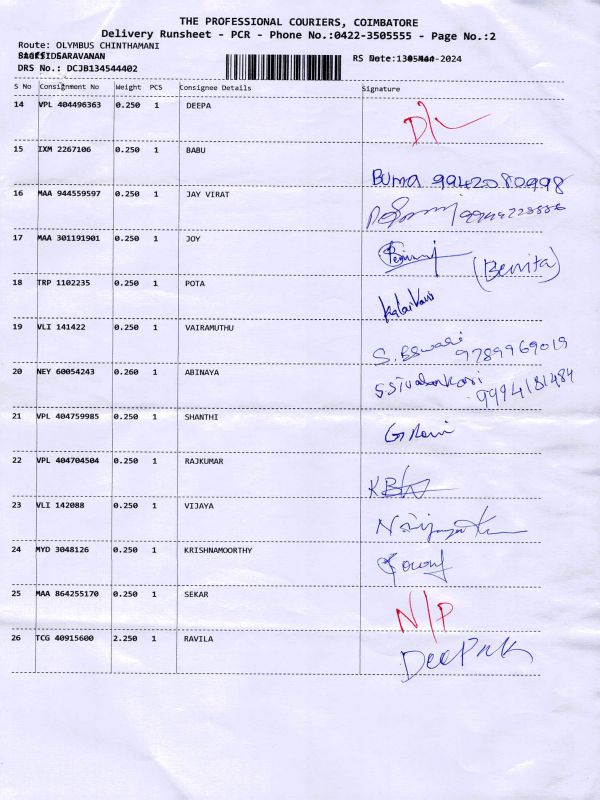 THE PROFESSIONAL COURIERS, COIMBATORE
Delivery Runsheet - PCR - Phone No.:0422-3505555 - Page No.:2
Route: OLYMBUS CHINTHAMANI
SARAVANAN
RS Date: 2024
DRS No.: DCJB134544402
S No Consignment No Weight PCS Consignee Details Signature
14 VPL 404496363 0.250 1 DEEPA
15 IXM 2267106 0.250 1 BABU
Buma 9942080998
16 MAA 944559597 0.250 1 JAY VIRAT
17 MAA 301191901 0.250 1 JOY
(Benita)
18 TRP 1102235 0.250 1 POTA
Kalaivani
19 VLI 141422 0.250 1 VAIRAMUTHU
S. Eswari 9789969019
20 NEY 60054243 0.260 1 ABINAYA
S Sivasankari 9994181484
21 VPL 404759985 0.250 1 SHANTHI
G Rani
22 VPL 404704504 0.250 1 RAJKUMAR
23 VLI 142088 0.250 1 VIJAYA
24 MYD 3048126 0.250 1 KRISHNAMOORTHY
25 MAA 864255170 0.250 1 SEKAR
N/P
26 TCG 40915600 2.250 1 RAVILA
Deepak